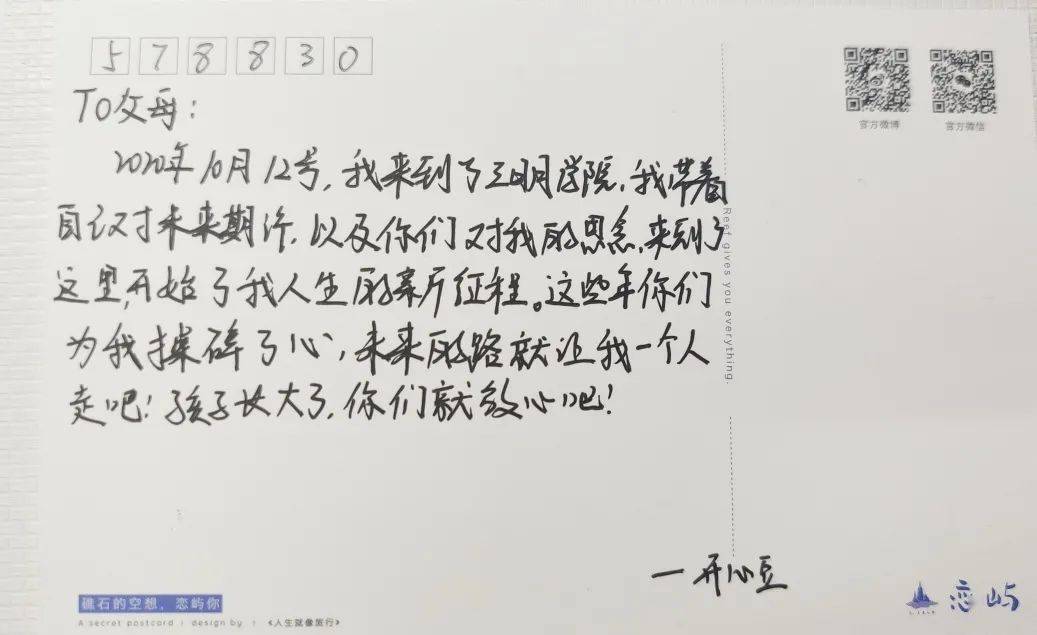 578830
官方微博 官方微信
To父母：
2020年10月12号，我来到了三明学院，我带着
自己对未来期许，以及你们对我的思念，来到了
这里，开始了我人生的新征程。这些年你们
为我操碎了心，未来的路就让我一个人
走吧！孩子长大了，你们就放心吧！
Rest gives you everything.
一开心豆
礁石的空想，恋屿你
A secret postcard | design by | 《人生就像旅行》
恋屿